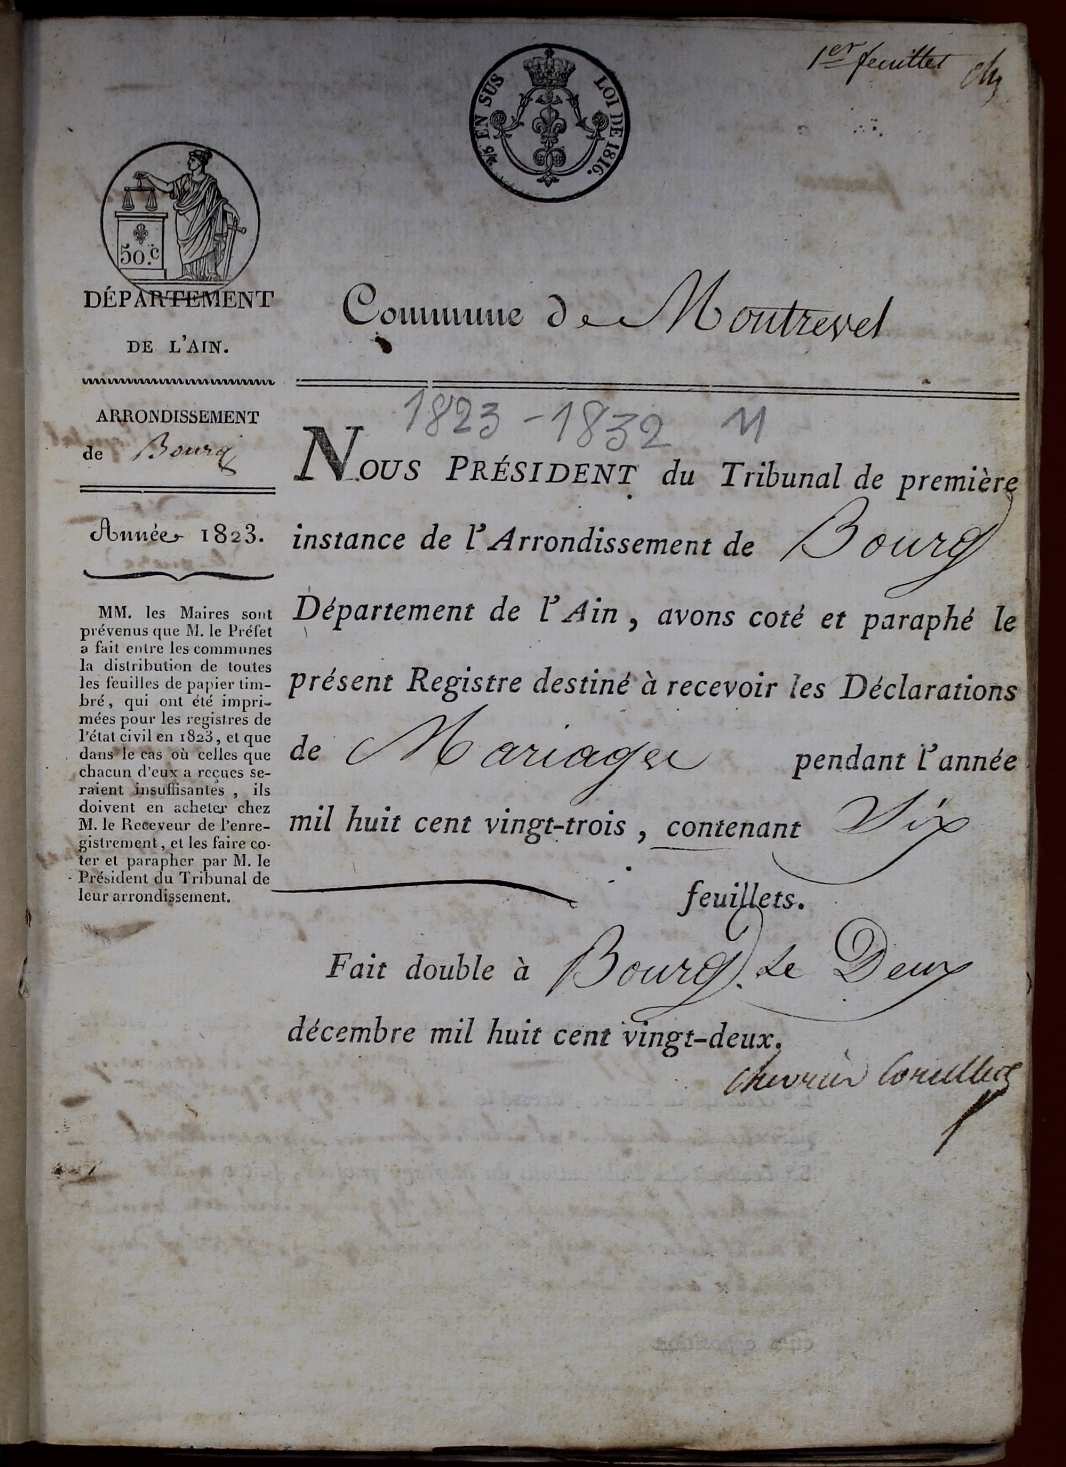 1er feuillet
EN SUS LOI DE 1816.
50.c
DÉPARTEMENT
DE L'AIN.
ARRONDISSEMENT
de Bourg
Année 1823.
MM. les Maires sont
prévenus que M. le Préfet
a fait entre les communes
la distribution de toutes
les feuilles de papier tim-
bré, qui ont été impri-
mées pour les registres de
l'état civil en 1823, et que
dans le cas où celles que
chacun d'eux a reçues se-
raient insuffisantes, ils
doivent en acheter chez
M. le Receveur de l'enre-
gistrement, et les faire co-
ter et parapher par M. le
Président du Tribunal de
leur arrondissement.
Commune de Montrevel
1823-1832
NOUS PRÉSIDENT du Tribunal de première
instance de l'Arrondissement de Bourg
Département de l'Ain, avons coté et paraphé le
présent Registre destiné à recevoir les Déclarations
de Mariages pendant l'année
mil huit cent vingt-trois, contenant Six
feuillets.
Fait double à Bourg, le Deux
décembre mil huit cent vingt-deux.